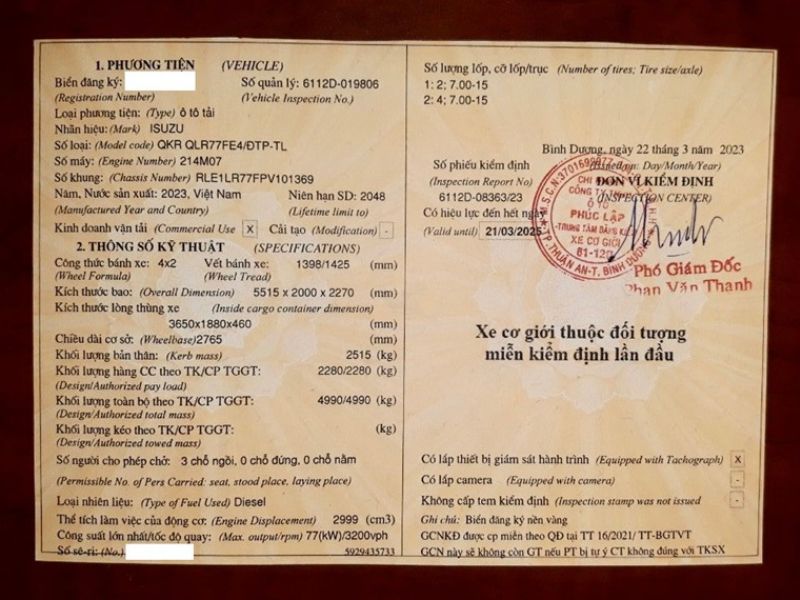 1. PHƯƠNG TIỆN (VEHICLE)
Biển đăng ký:
Số quản lý: 6112D-019806
(Registration Number)
(Vehicle Inspection No.)
Loại phương tiện: (Type) ô tô tải
Nhãn hiệu: (Mark) ISUZU
Số loại: (Model code) QKR QLR77FE4/ĐTP-TL
Số máy: (Engine Number) 214M07
Số khung: (Chassis Number) RLE1LR77FPV101369
Năm, Nước sản xuất: 2023, Việt Nam
Niên hạn SD: 2048
(Manufactured Year and Country)
(Lifetime limit to)
Kinh doanh vận tải (Commercial Use X Cải tạo (Modification) -
2. THÔNG SỐ KỸ THUẬT (SPECIFICATIONS)
Công thức bánh xe: 4x2
Vết bánh xe: 1398/1425 (mm)
(Wheel Formula)
(Wheel Tread)
Kích thước bao: (Overall Dimension) 5515 x 2000 x 2270 (mm)
Kích thước lòng thùng xe (Inside cargo container dimension)
3650x1880x460 (mm)
Chiều dài cơ sở: (Wheelbase)2765 (mm)
Khối lượng bản thân: (Kerb mass) 2515 (kg)
Khối lượng hàng CC theo TK/CP TGGT: 2280/2280 (kg)
(Design/Authorized pay load)
Khối lượng toàn bộ theo TK/CP TGGT: 4990/4990 (kg)
(Design/Authorized total mass)
Khối lượng kéo theo TK/CP TGGT: (kg)
(Design/Authorized towed mass)
Số người cho phép chở: 3 chỗ ngồi, 0 chỗ đứng, 0 chỗ nằm
(Permissible No. of Pers Carried: seat, stood place, laying place)
Loại nhiên liệu: (Type of Fuel Used) Diesel
Thể tích làm việc của động cơ: (Engine Displacement) 2999 (cm3)
Công suất lớn nhất/tốc độ quay: (Max. output/rpm) 77(kW)/3200vph
Số sê-ri: (No.)
5929435733
Số lượng lốp, cỡ lốp/trục (Number of tires; Tire size/axle)
1: 2; 7.00-15
2: 4; 7.00-15
Bình Dương, ngày 22 tháng 3 năm 2023
(Issued on: Day/Month/Year)
Số phiếu kiểm định
(Inspection Report No)
6112D-08363/23
ĐƠN VỊ KIỂM ĐỊNH
(INSPECTION CENTER)
Có hiệu lực đến hết ngày
(Valid until) 21/03/2025
M.S.C.N:3701698977
CHI
CÔNG TY
Ô TÔ
PHÚC LẬP
-TRUNG TÂM ĐĂNG KIỂM
XE CƠ GIỚI
61-12D
TP.THUẬN AN-T. BÌNH DƯƠNG
Phó Giám Đốc
Phan Văn Thanh
Xe cơ giới thuộc đối tượng
miễn kiểm định lần đầu
Có lắp thiết bị giám sát hành trình (Equipped with Tachograph) X
Có lắp camera (Equipped with camera) -
Không cấp tem kiểm định (Inspection stamp was not issued -
Ghi chú: Biển đăng ký nền vàng
GCNKĐ được cp miễn theo QĐ tại TT 16/2021/ TT-BGTVT
GCN này sẽ không còn GT nếu PT bị tự ý CT không đúng với TKSX